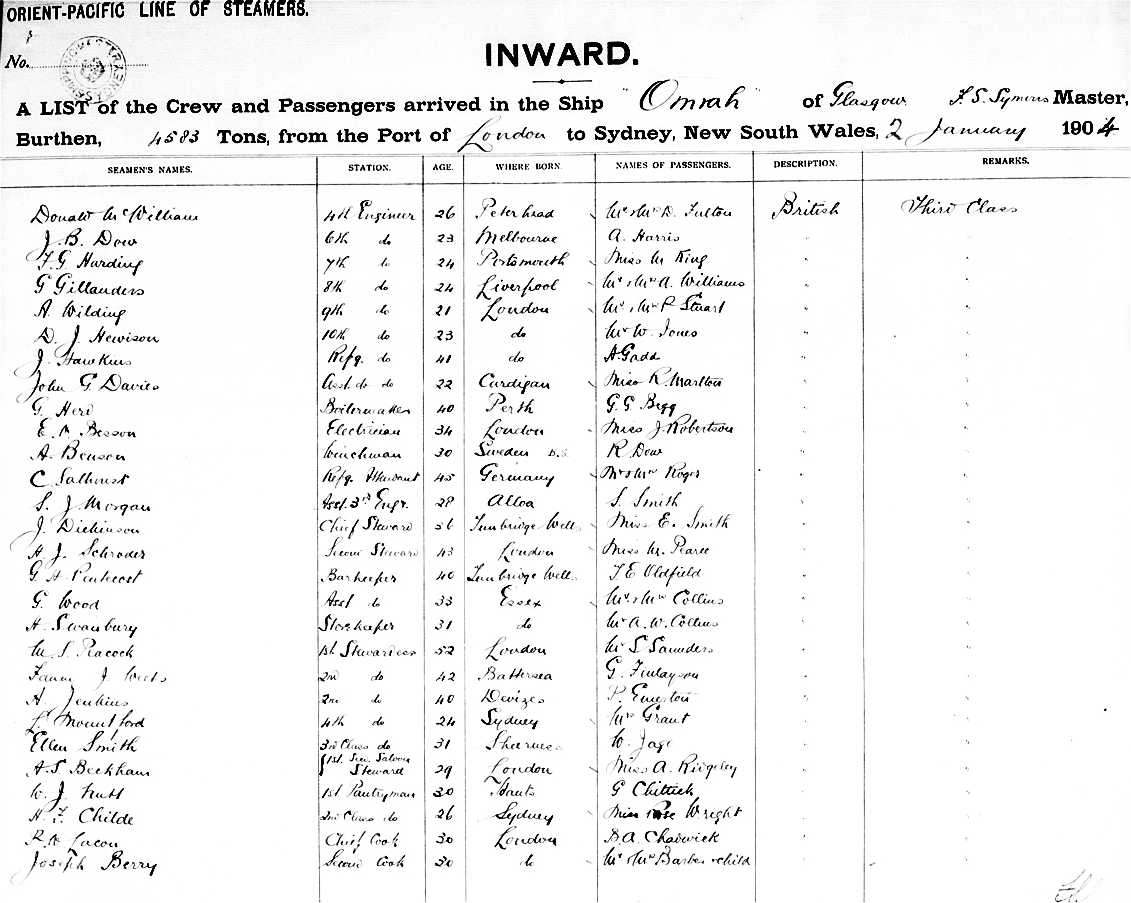 ORIENT-PACIFIC LINE OF STEAMERS.
No.
INWARD.
A LIST of the Crew and Passengers arrived in the Ship "Omrah" of Glasgow F. S. Symons Master,
Burthen, 4583 Tons, from the Port of London to Sydney, New South Wales, 2 January 1904
SEAMEN'S NAMES. STATION. AGE. WHERE BORN. NAMES OF PASSENGERS. DESCRIPTION. REMARKS.
Donald McWilliam 4th Engineer 26 Peterhead Mr & Mrs D. Fulton British Third Class
J. B. Dow 6th do 23 Melbourne A. Harris " "
F. G Harding 7th do 24 Portsmouth Miss M King " "
G Gillanders 8th do 24 Liverpool Mr & Mrs A. Williams " "
A. Wilding 9th do 21 London Mr & Mrs P Stuart " "
D. J. Hewison 10th do 23 do Mr W. Jones " "
J. Hawkins Refg. do 41 do A Gadd " "
John G Davies Asst do do 22 Cardigan Miss R Marlton " "
G. Herd Boilermaker 40 Perth G. G Begg " "
E. A Besson Electrician 34 London Miss J. Robertson " "
A. Benson Winchman 30 Sweden B.S. R Dow " "
C Salhurst Refg. Attendant 45 Germany Mr & Mrs Roger " "
S. J. Morgan Asst. 3rd Engr. 28 Alloa S. Smith " "
J. Dickinson Chief Steward 56 Tunbridge Wells Miss E. Smith " "
H. J. Schroder Second Steward 43 London Miss M. Pearce " "
G. H. Pentecost Barkeeper 40 Tunbridge Wells T E Oldfield " "
G. Wood Asst do 33 Essex Mr & Mrs Collins " "
H. Swanbury Storekeeper 31 do Mr A. W. Collins " "
M. S. Peacock 1st Stewardess 52 London Mr S Saunders " "
Fanny J 2nd do 42 Battersea G. Finlayson " "
A Jenkins 2nd do 40 Devizes P. Emerton " "
L. Mountford 4th do 24 Sydney Mrs Grant " "
Ellen Smith 3rd Class do 31 Sheerness W. Jage " "
A. S Beckham 1st. Sec. Saloon Steward 29 London Miss A. Ridgeley " "
W. J. Nutt 1st Pantryman 30 Hants G Chittick " "
H. F. Childe 2nd Class do 26 Sydney Miss Rose Wright " "
R. H. Lacon Chief Cook 30 London B. A. Chadwick " "
Joseph Berry Second Cook 30 do Mr & Mrs Barber & child " "